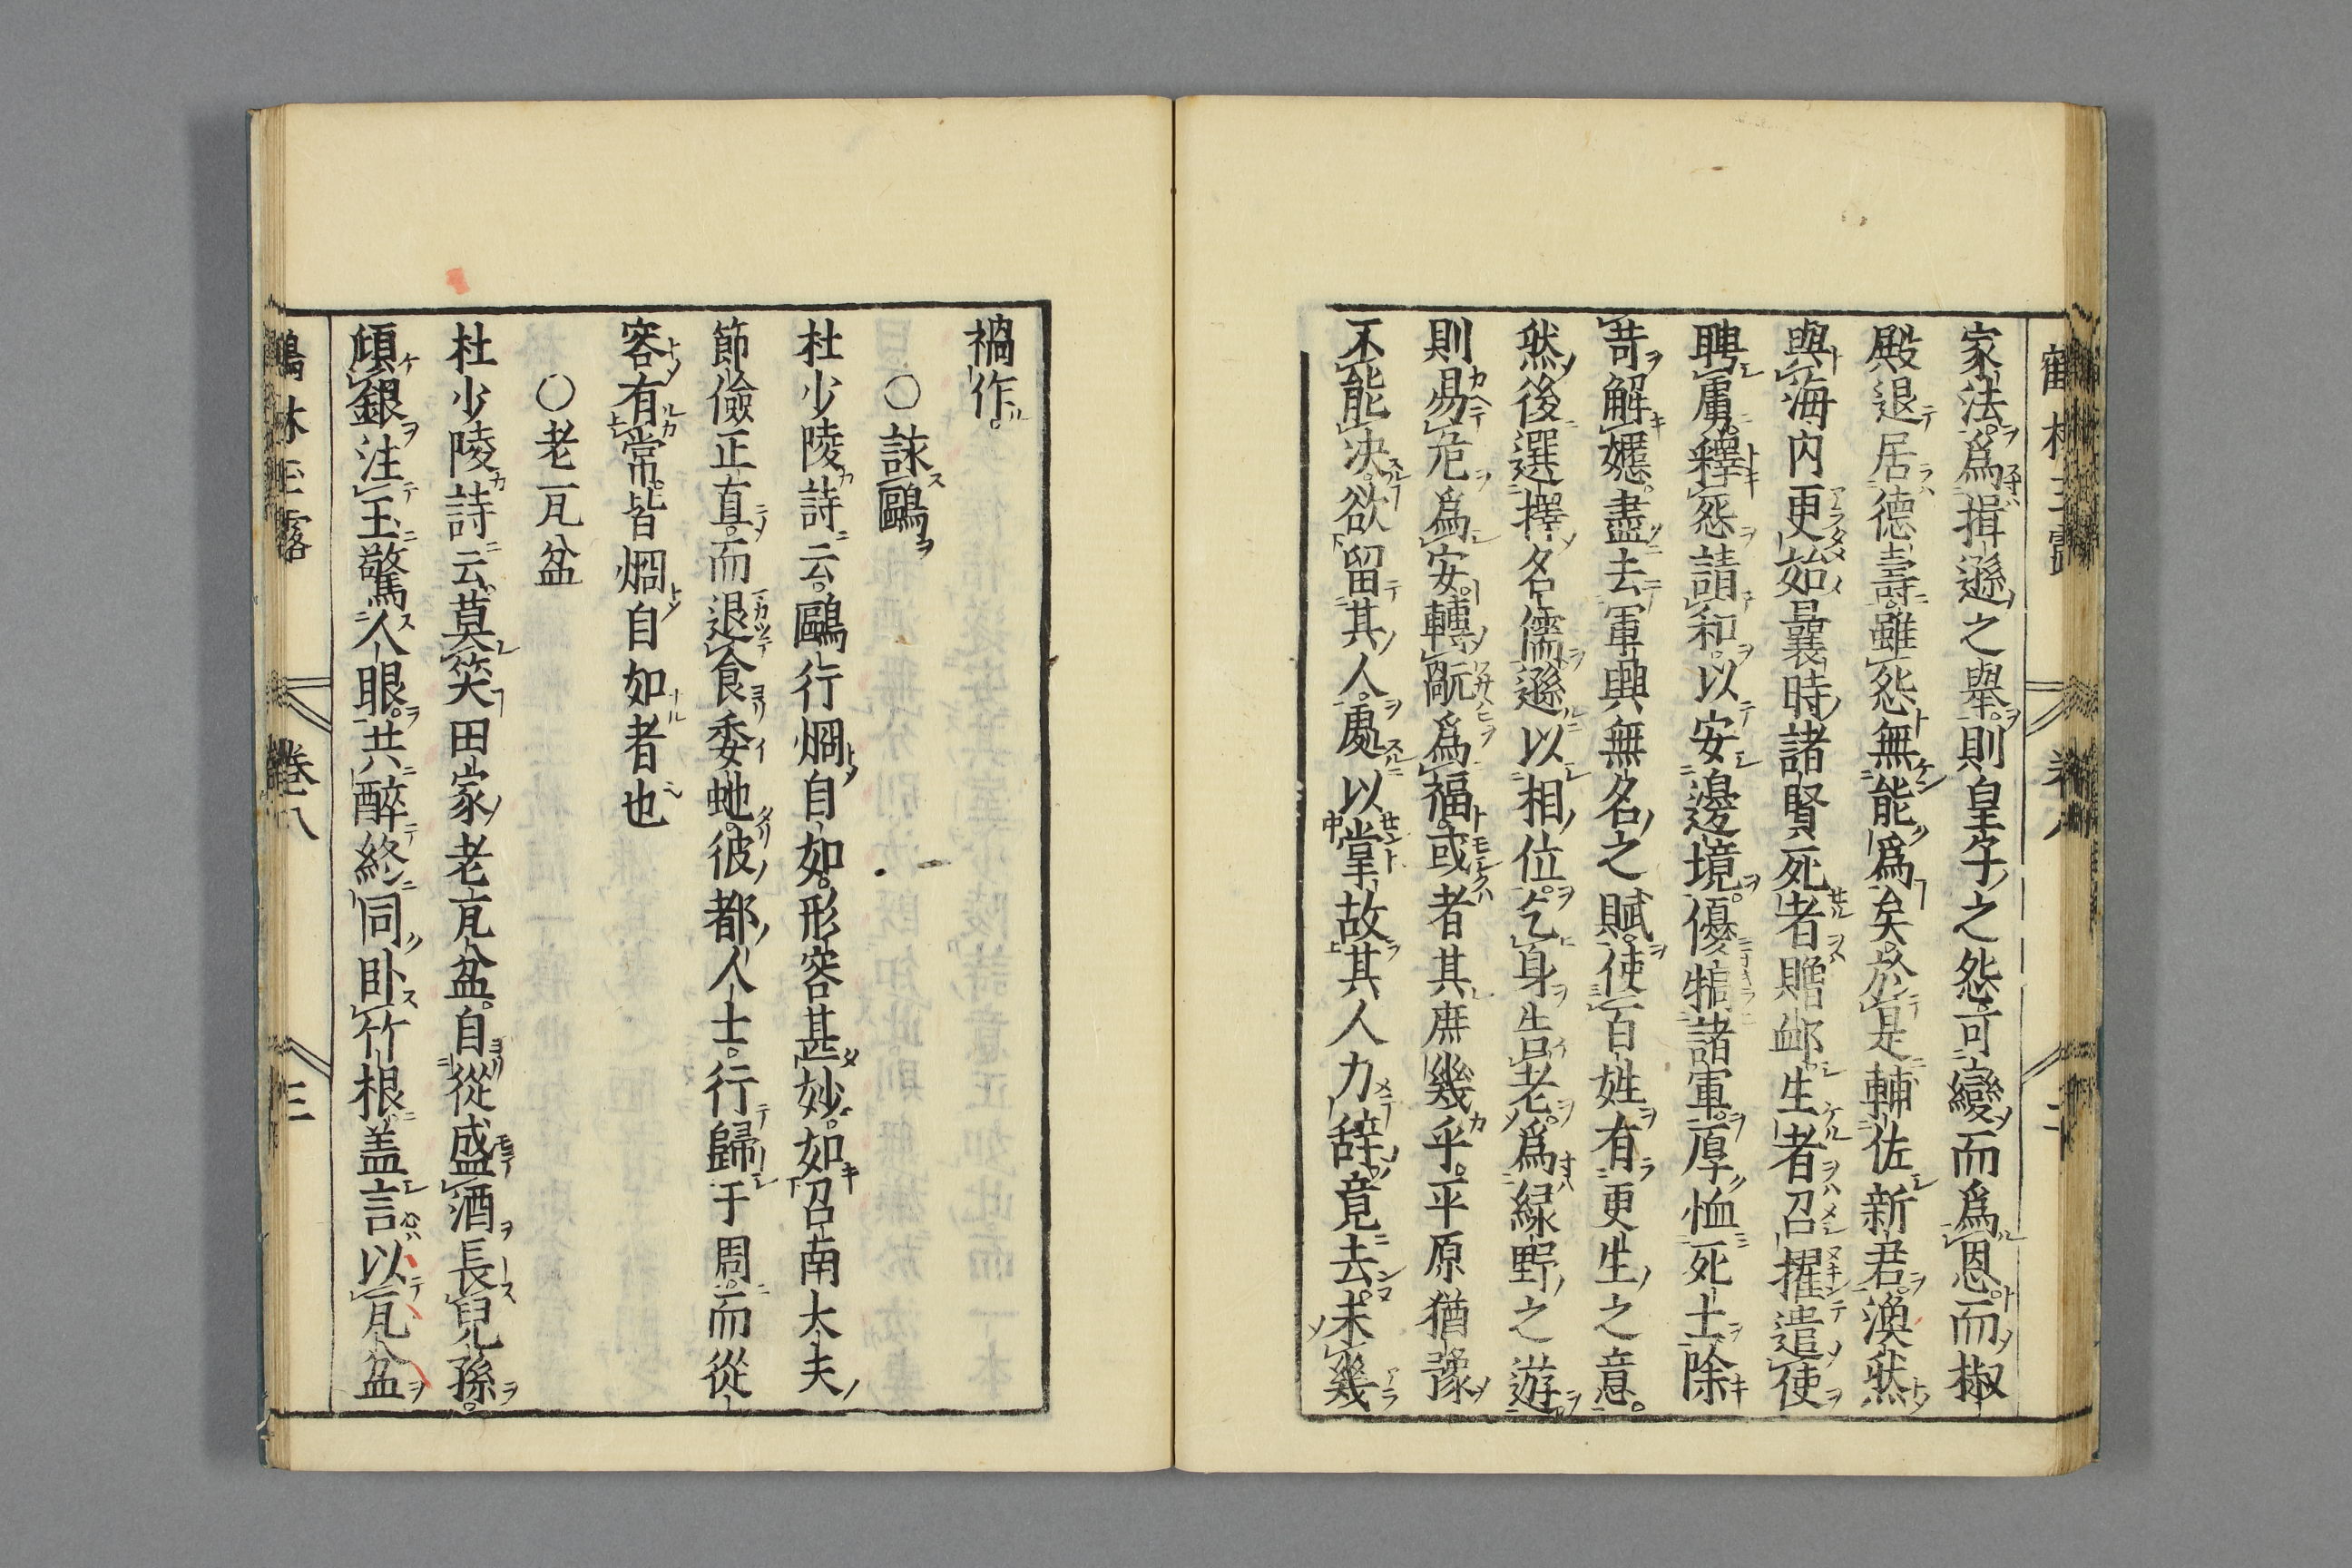 家法爲揖遜之擧則皇子之怨可變而爲恩而椒
殿退居德壽雖怨無能爲矣於是輔佐新君渙然
與海内更始曩時諸賢死者贈卹生者召擢遣使
聘虜釋怨請和以安邊境優犒諸軍厚恤死士除
苛解嬈盡去軍興無名之賦使百姓有更生之意
然後選擇名儒遜以相位乞身告老爲緑野之遊
則易危爲安轉禍爲福或者其庶幾乎平原猶豫
不能決欲留其人處以掌故其人力辞竟去未幾
禍作
○詠鷗
杜少陵詩云鷗行烱自如形容甚妙如召南大夫
節儉正直而退食委蛇彼都人士行歸于周而從
容有常皆烱自如者也
○老瓦盆
杜少陵詩云莫笑田家老瓦盆自從盛酒長兒孫
傾銀注玉驚人眼共醉終同卧竹根盖言以瓦盆
卷八 三